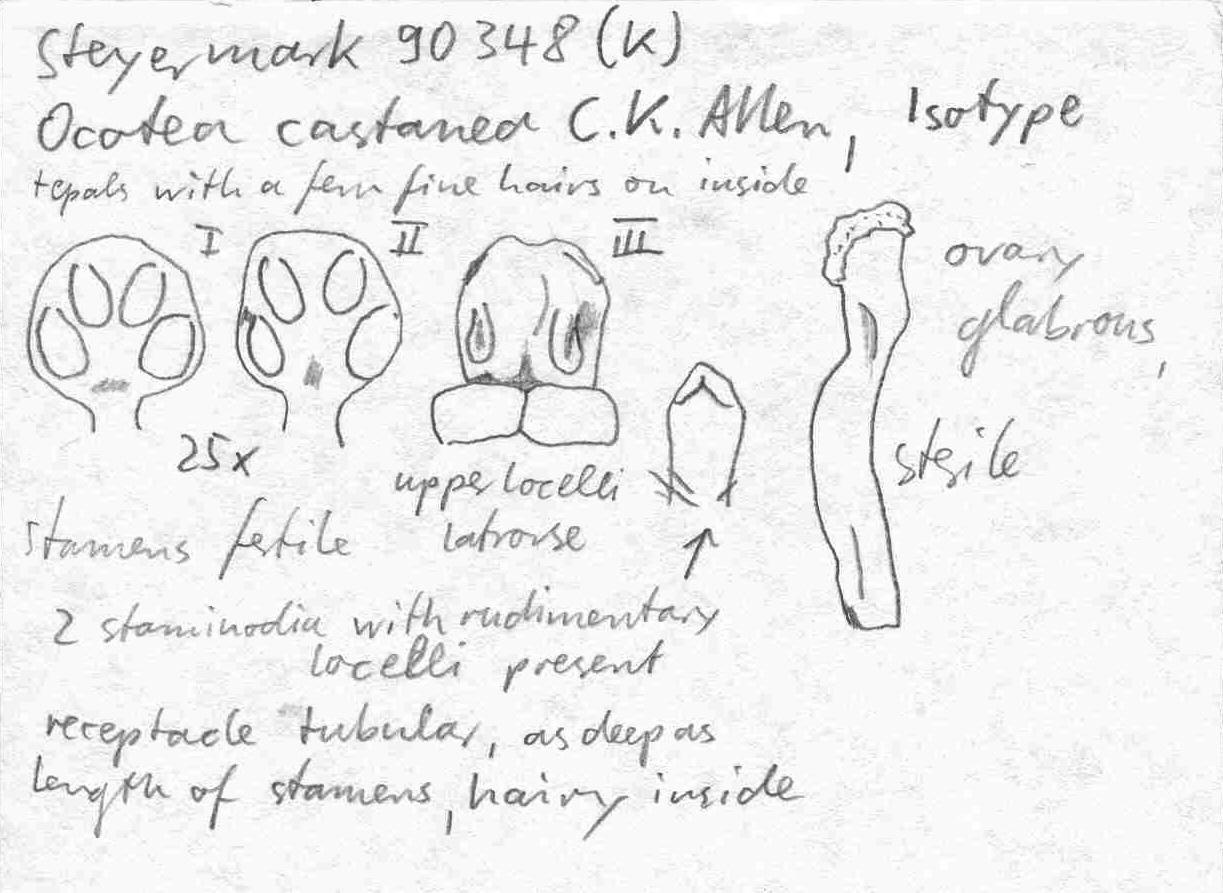 Steyermark 90348 (K)
Ocotea castanea C.K. Allen, Isotype
tepals with a few fine hairs on inside
I II III
ovary
glabrous,
sterile
25x
upper locelli
latrorse
stamens fertile
2 staminodia with rudimentary
locelli present
receptacle tubular, as deep as
length of stamens, hairy inside